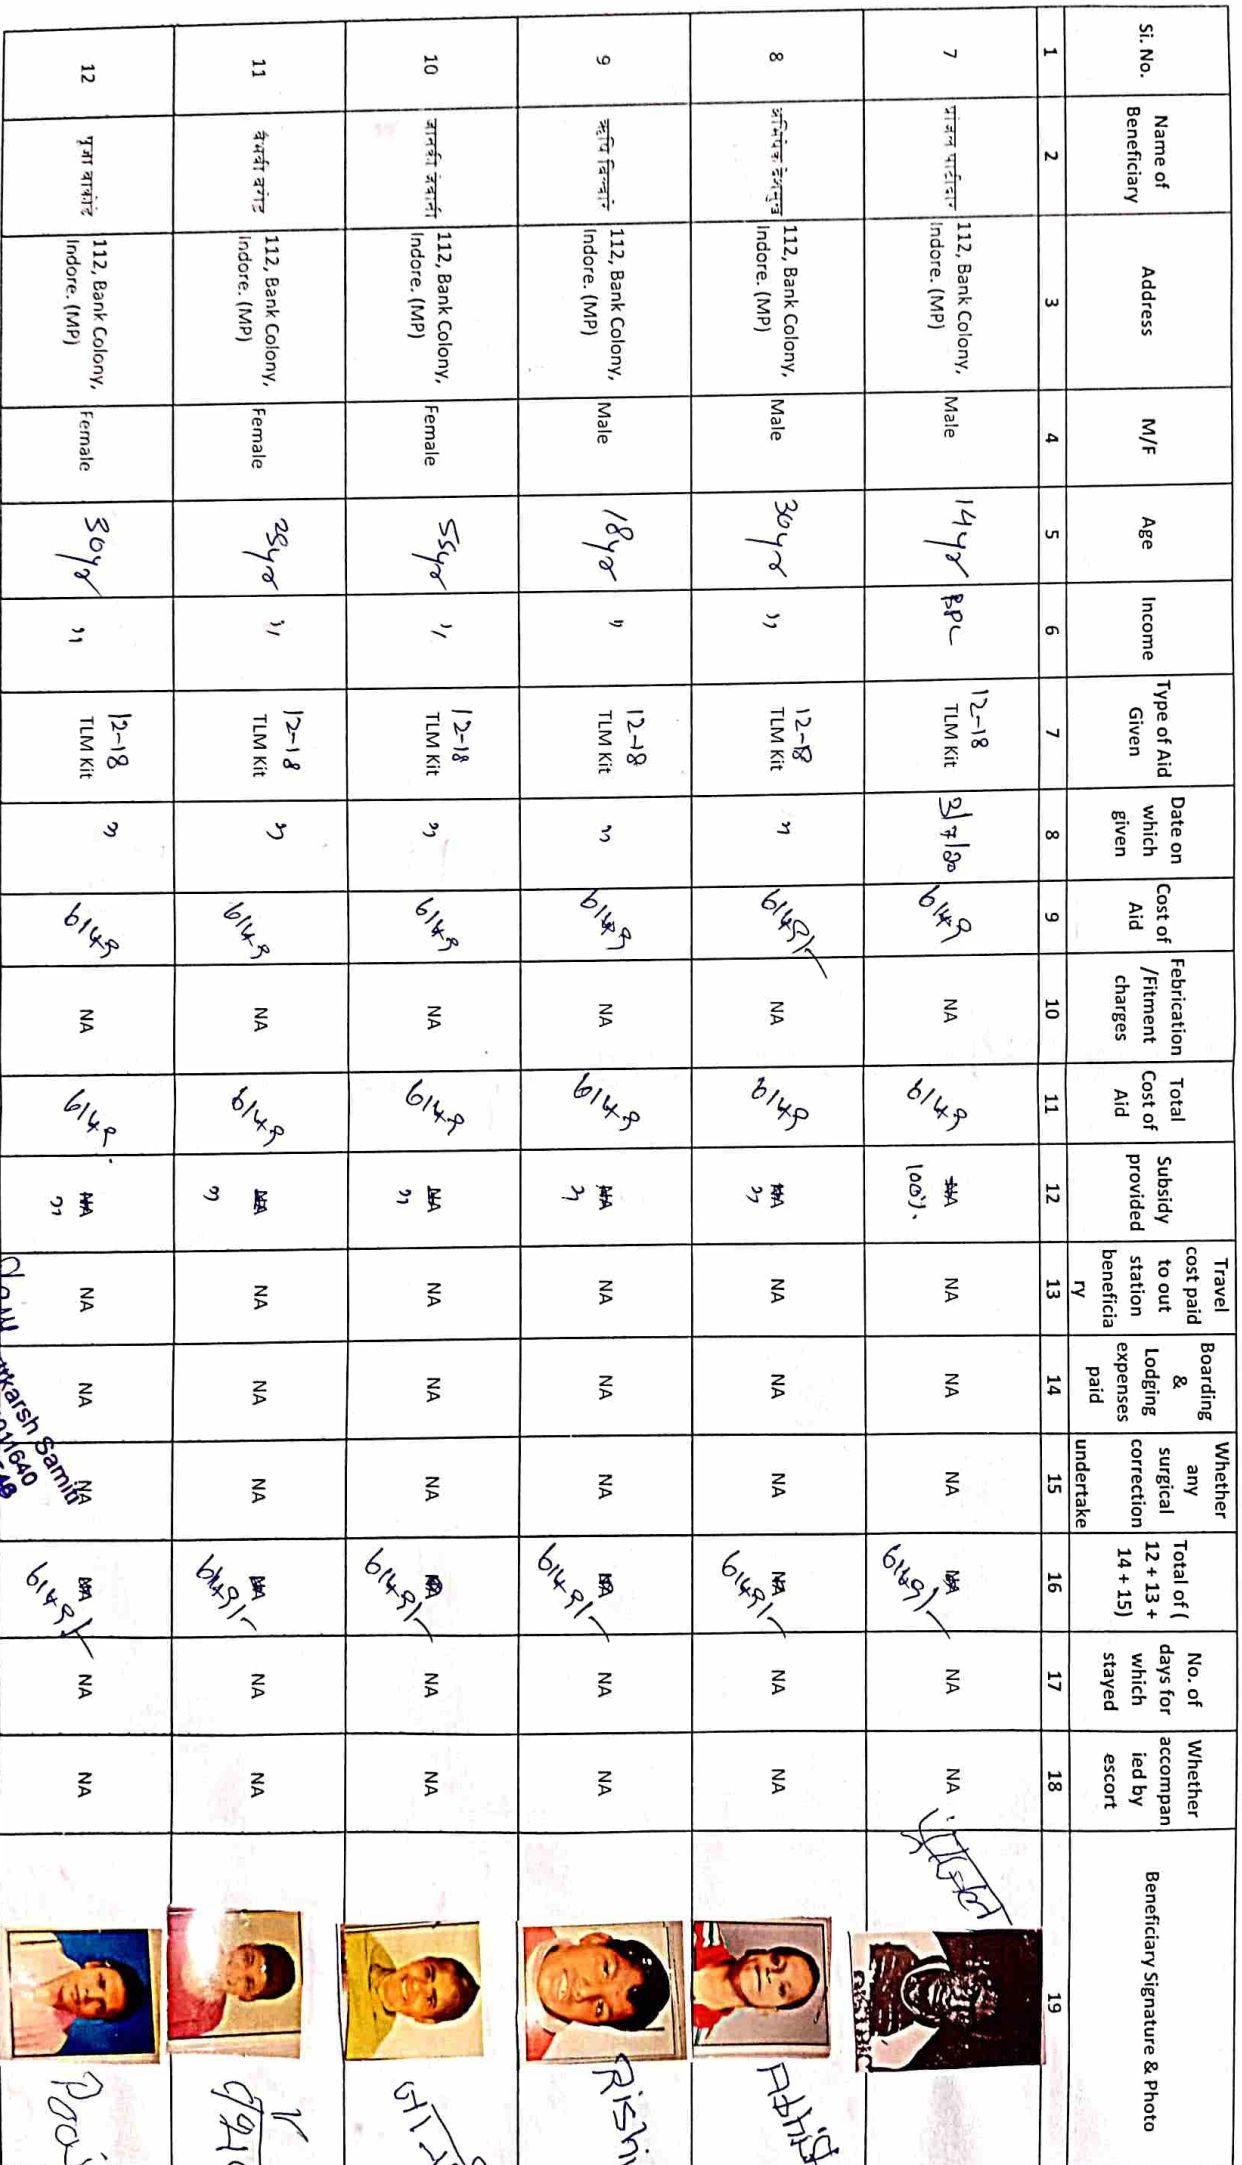 Si. No.
Name of
Beneficiary
Address
M/F
Age
Income
Type of Aid
Given
Date on
which
given
Cost of
Aid
Febrication
/Fitment
charges
Total
Cost of
Aid
Subsidy
provided
Travel
cost paid
to out
station
beneficia
ry
Boarding
&
Lodging
expenses
paid
Whether
any
surgical
correction
undertake
Total of (
12 + 13 +
14 + 15)
No. of
days for
which
stayed
Whether
accompan
ied by
escort
Beneficiary Signature & Photo
1 2 3 4 5 6 7 8 9 10 11 12 13 14 15 16 17 18 19
7
पाटीदार
112, Bank Colony,
Indore. (MP)
Male
14yr
BPL
12-18
TLM Kit
3/7/20
6149
NA
6149
NA
100%.
NA
NA
NA
NA
6149/-
NA
NA
8
अभिषेक देशमुख
112, Bank Colony,
Indore. (MP)
Male
30yr
"
12-18
TLM Kit
"
6149/-
NA
6149
NA
"
NA
NA
NA
NA
6149/-
NA
NA
9
ऋषि
112, Bank Colony,
Indore. (MP)
Male
18yr
"
12-18
TLM Kit
"
6149
NA
6149
NA
"
NA
NA
NA
NA
6149/-
NA
NA
Rishi
10
जानकी
112, Bank Colony,
Indore. (MP)
Female
55yr
"
12-18
TLM Kit
"
6149
NA
6149
NA
"
NA
NA
NA
NA
6149/-
NA
NA
11
112, Bank Colony,
Indore. (MP)
Female
"
12-18
TLM Kit
"
6149
NA
6149
NA
"
NA
NA
NA
NA
6149/-
NA
NA
12
पूजा
112, Bank Colony,
Indore. (MP)
Female
30yr
"
12-18
TLM Kit
"
6149
NA
6149
NA
"
NA
NA
NA
NA
6149/-
NA
NA
Samiti